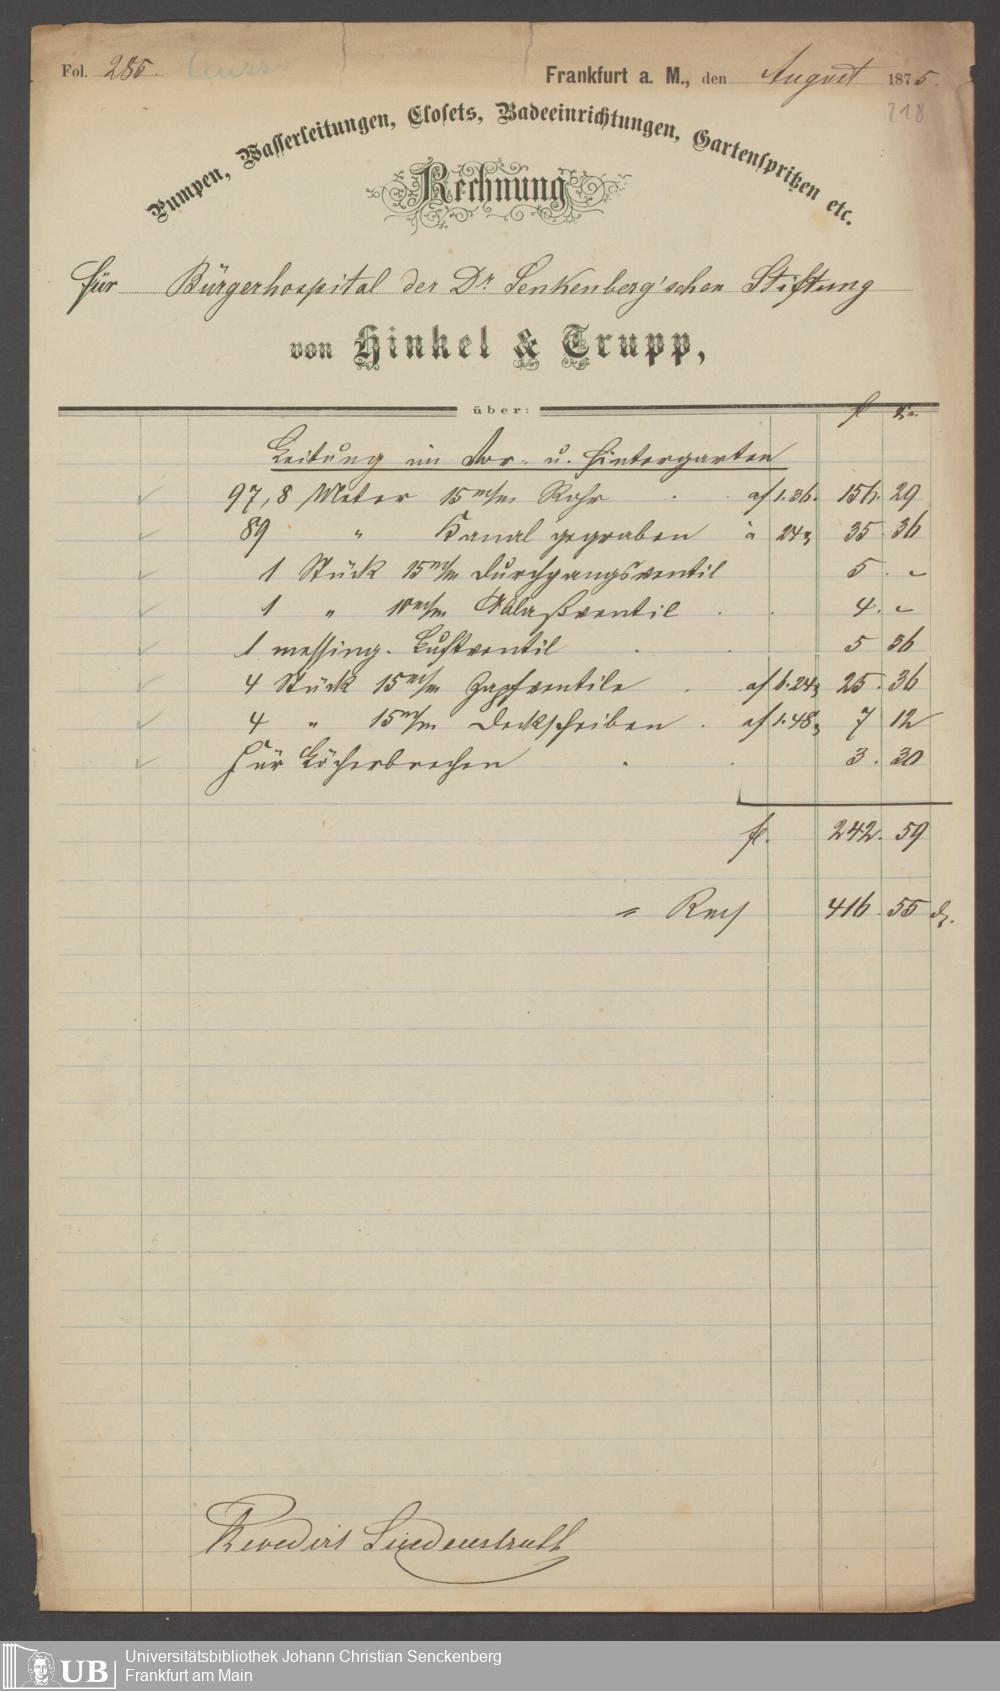 Fol. 285.
Frankfurt a. M., den August 1875.
218
Pumpen, Wasserleitungen, Closets, Badeeinrichtungen, Gartenspritzen etc.
Rechnung
für Bürgerhospital der Dr. Senkenberg'schen Stiftung
von Hinkel & Trupp,
über:
fl xr.
Leitung im Vor- u. Hintergarten
97,8 Meter 15 m/m Rohr . . à f 1.36. 156. 29
89 " Kanal gegraben à 24 x 35. 36
1 Stück 15 m/m Durchgangsventil 5. -
1 " 10 m/m Ablaßventil . . 4. -
1 messing. Luftventil . . 5 36
4 Stück 15 m/m Zapfventile . à f 6.24 x 25. 36
4 " 15 m/m Deckscheiben . à f 1.48 x 7 12
Für Löcherbrechen . . 3. 30
fl. 242. 59
= Rm 416. 55 d.
Revedirt Lindenstruth
Universitätsbibliothek Johann Christian Senckenberg
UB Frankfurt am Main